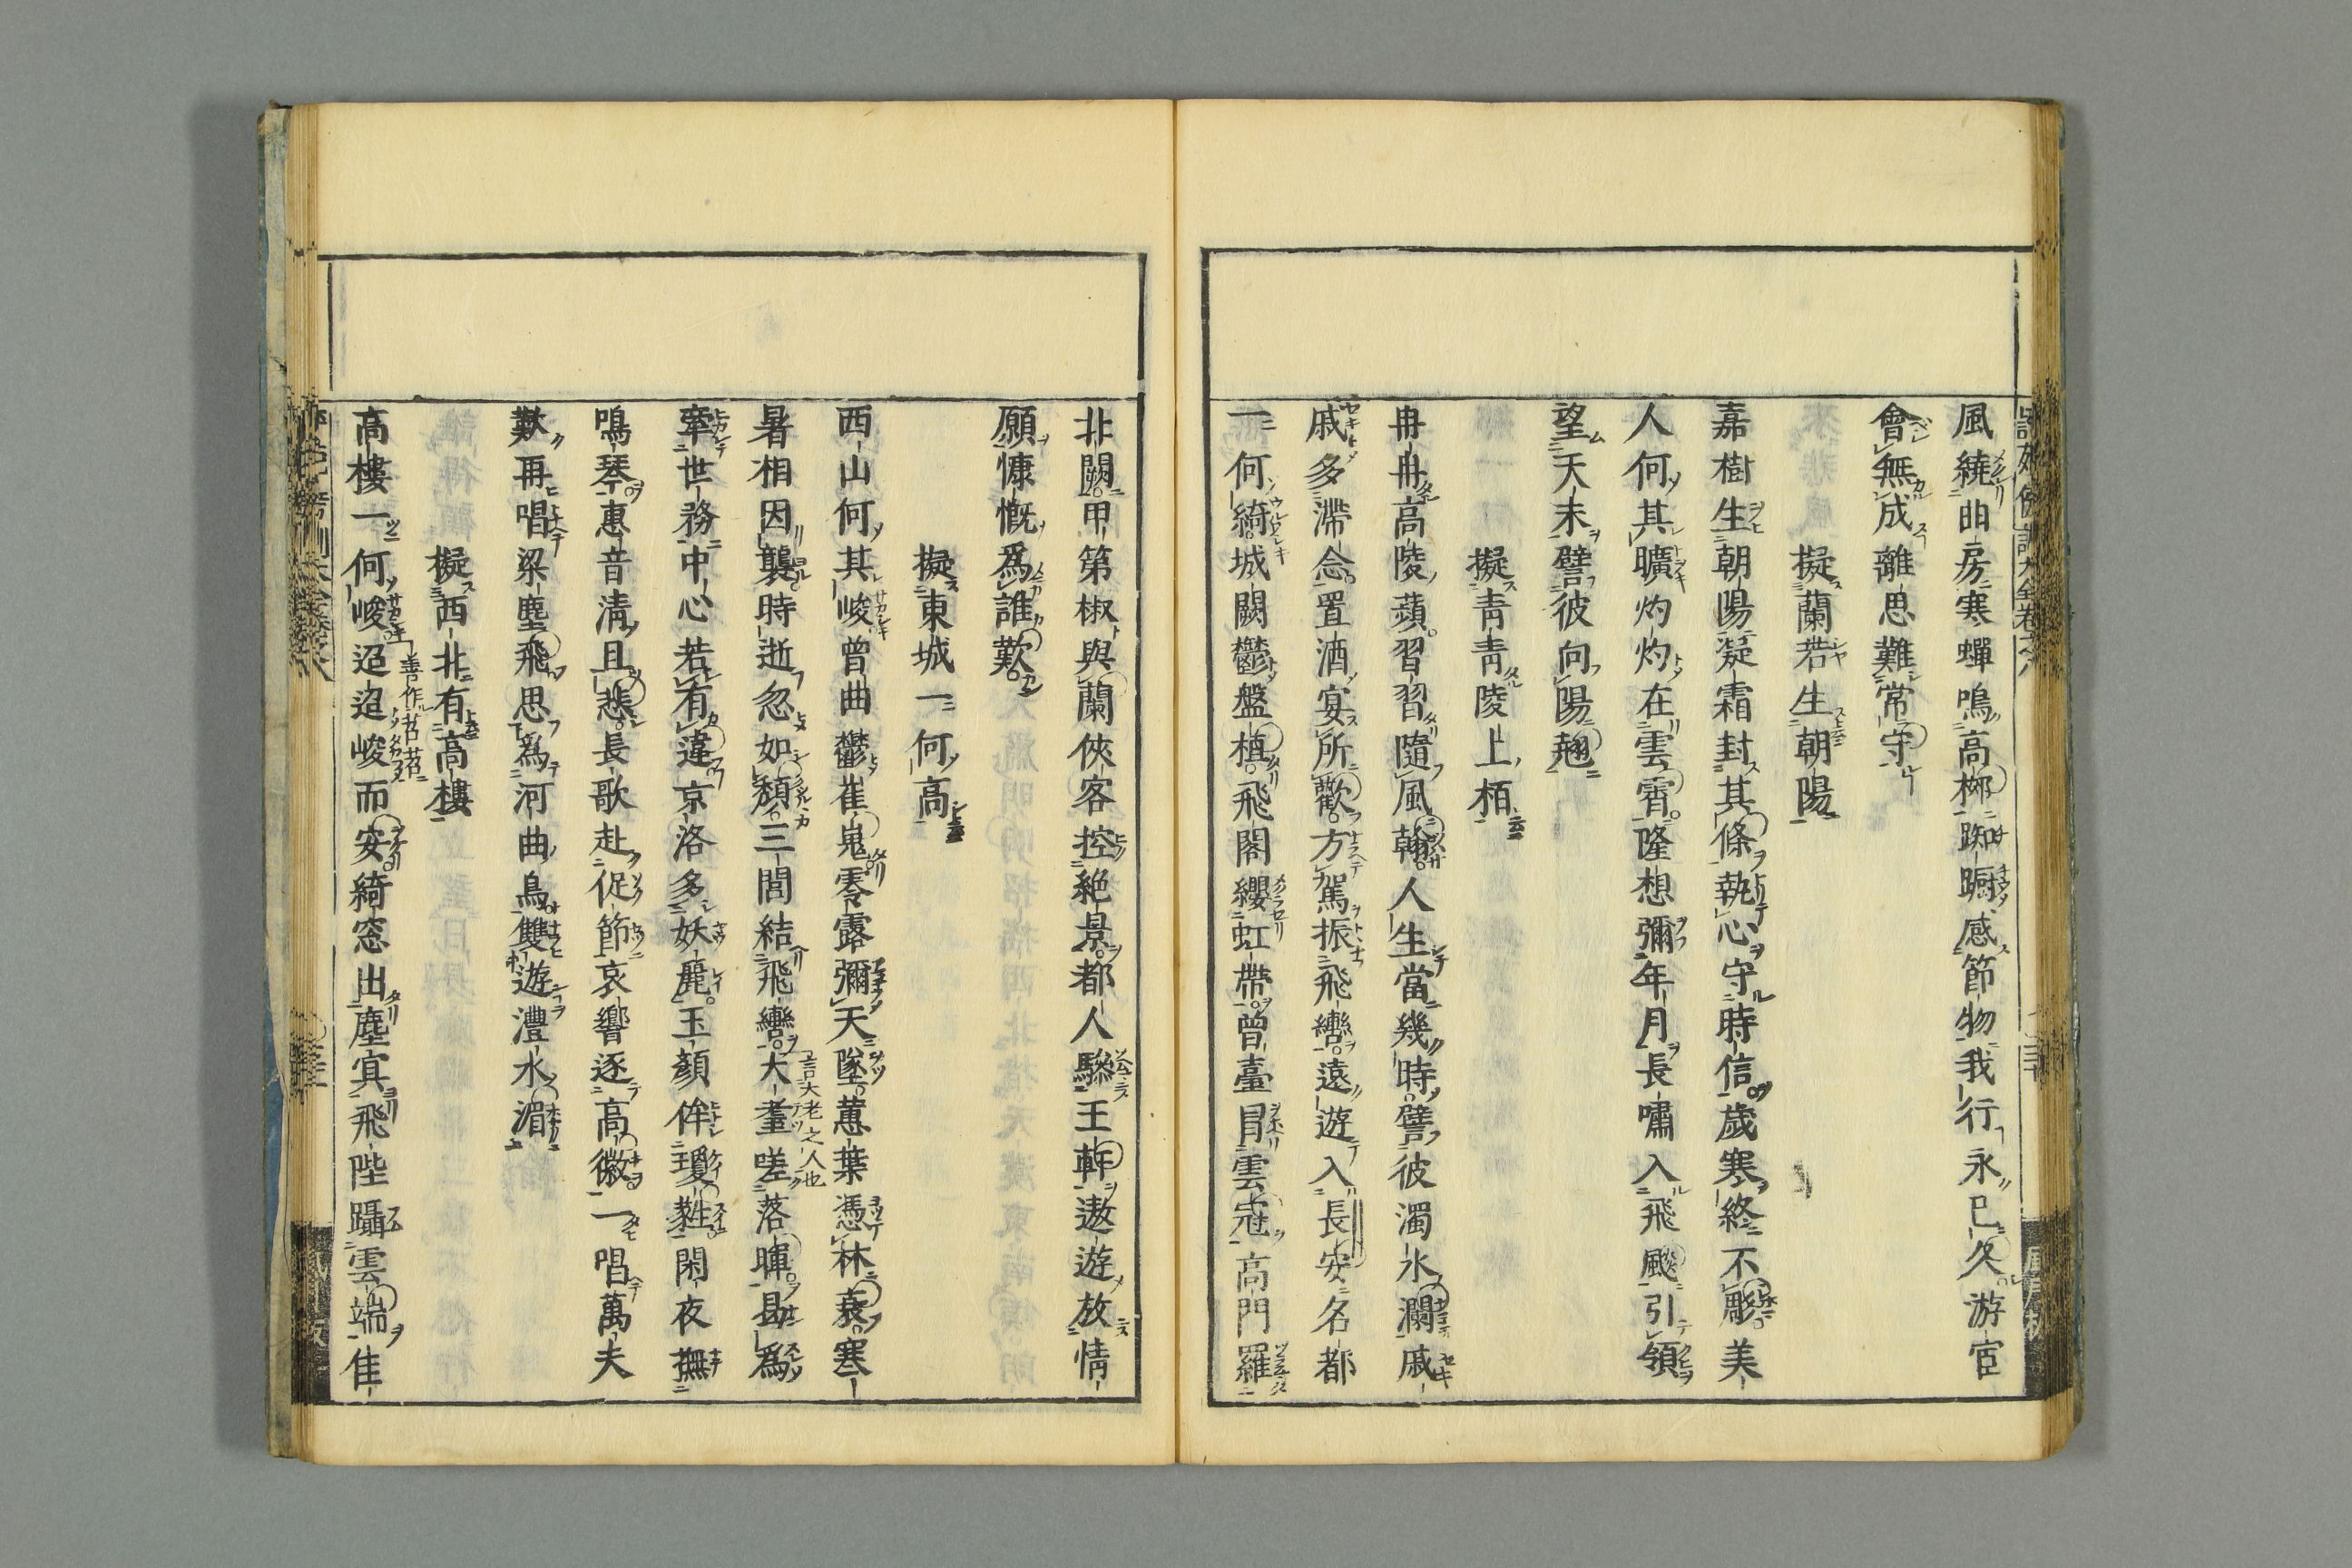 風繞曲房寒蟬鳴高桺踟蹰感節物我行永已久游宦
會無成離思難常守
擬蘭若生朝陽
嘉樹生朝陽凝霜封其條執心守時信歲寒終不彫美
人何其曠灼灼在雲霄隆想彌年月長嘯入飛飈引領
望天末譬彼向陽翹
擬青青陵上栢
冉冉高陵蘋習習隨風翰人生當幾時譬彼濁水瀾戚
戚多滯念置酒宴所歡方駕振飛轡遠遊入長安名都
一何綺城闕鬱盤桓飛閣纓虹帶曾臺冒雲冠高門羅
北闕甲第椒與蘭俠客控絕景都人驂玉軒遨遊放情
願慷慨爲誰歎
擬東城一何高
西山何其峻曾曲鬱崔嵬零露彌天墜蕙葉憑林衰寒
暑相因襲時逝忽如頹三閭結飛轡大耋嗟落暉曷爲
牽世務中心若有違京洛多妖麗玉顏侔瓊蕤閑夜撫
鳴琴惠音淸且悲長歌赴促節哀響逐高徽一唱萬夫
歎再唱梁塵飛思爲河曲鳥雙遊灃水湄
擬西北有高樓
高樓一何峻迢迢峻而安綺窓出塵冥飛陛躡雲端佳